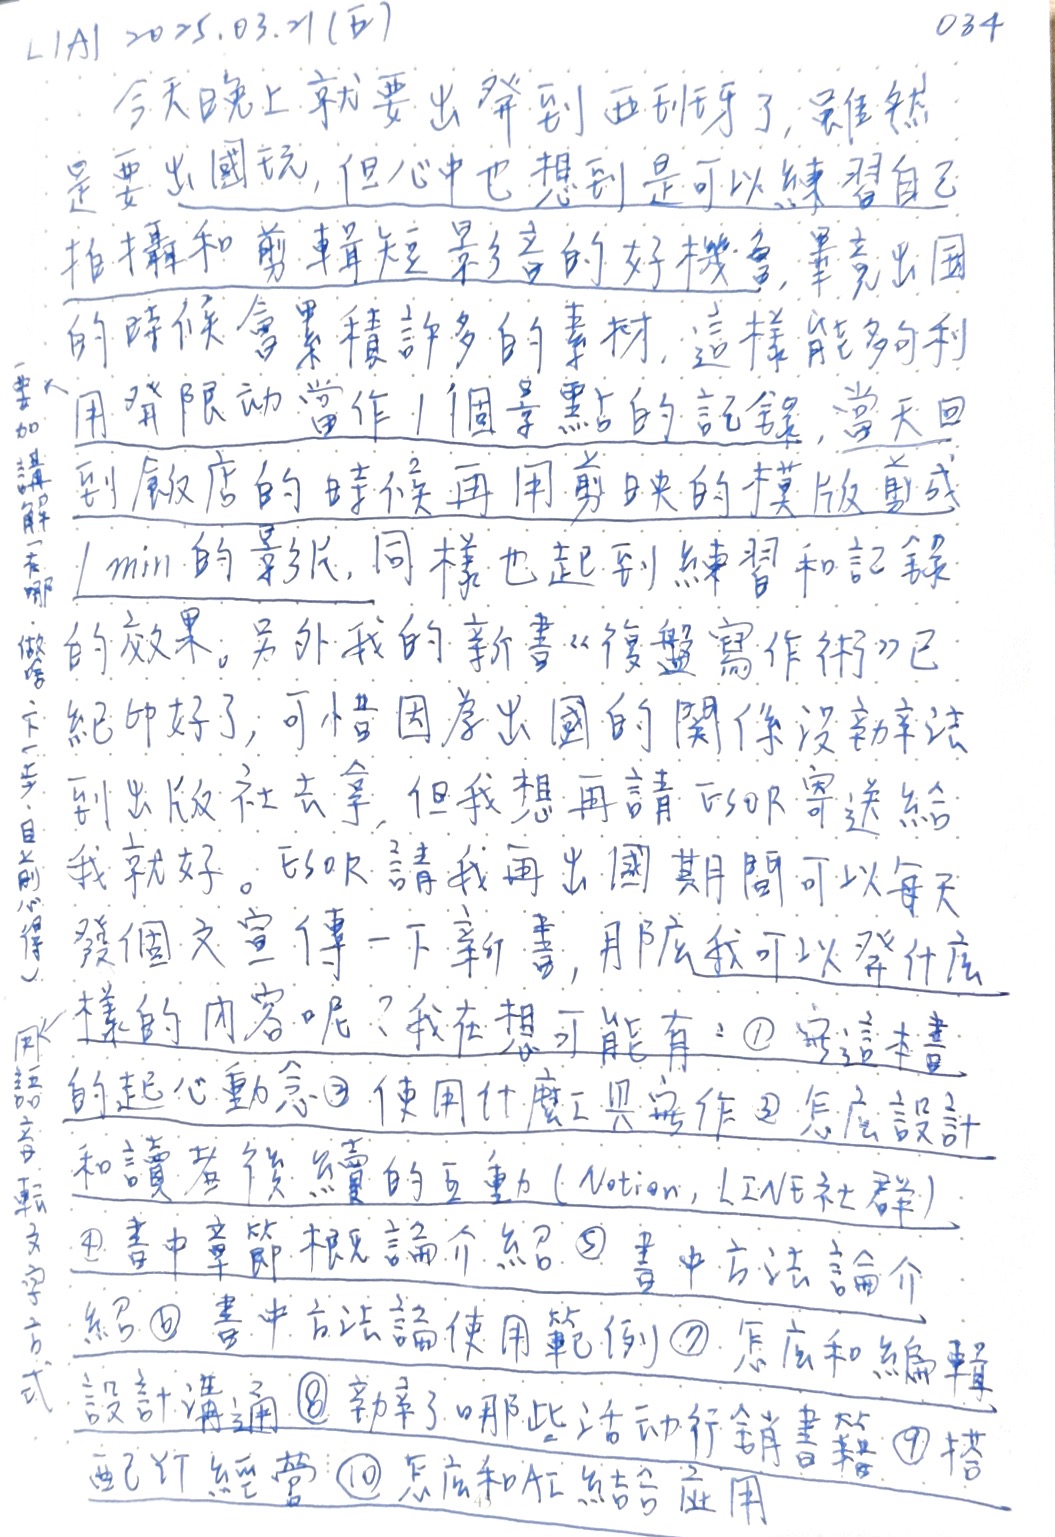 LIAI 2025.03.21(五)
034
今天晚上就要出發到西班牙了,雖然
是要出國玩,但心中也想到是可以練習自己
拍攝和剪輯短影音的好機會,畢竟出国
的時候會累積許多的素材,這樣能夠利
用發限动當作1個景點的記錄,當天回
到飯店的時候再用剪映的模版剪成
1min的影片,同樣也起到練習和記錄
的效果。另外我的新書“復盤寫作術”已
經印好了,可惜因為出國的關係沒辦法
到出版社去拿,但我想再請ESOR寄送給
我就好。ESOR請我再出國期間可以每天
發個文宣傳一下新書,那広我可以發什広
樣的內容呢?我在想可能有:①寫這本書
的起心動念②使用什麼工具寫作③怎広設計
和讀者後續的互動(Notion,LINE社群)
④書中章節概論介紹⑤書中方法論介
紹⑥書中方法論使用範例⑦怎広和編輯
設計溝通⑧辦了哪些活动行銷書籍⑨搭
配YT經營⑩怎広和AI結合应用
要加講解(去哪、做啥、下一步、目前心得)
用語音転文字方式